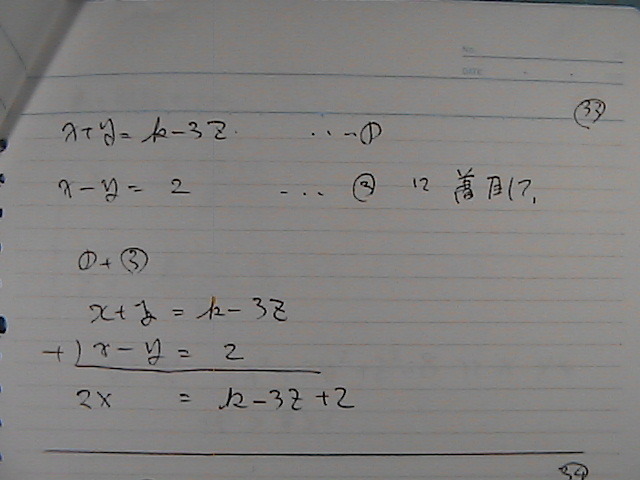 No.
DATE
㉝
x+y=k-3z ...①
x-y=2 ...③ に着目して,
①+③
x+y=k-3z
+) x-y=2
2x =k-3z+2
㉞